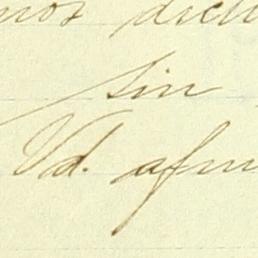 nos dich
sin
Vd. afm